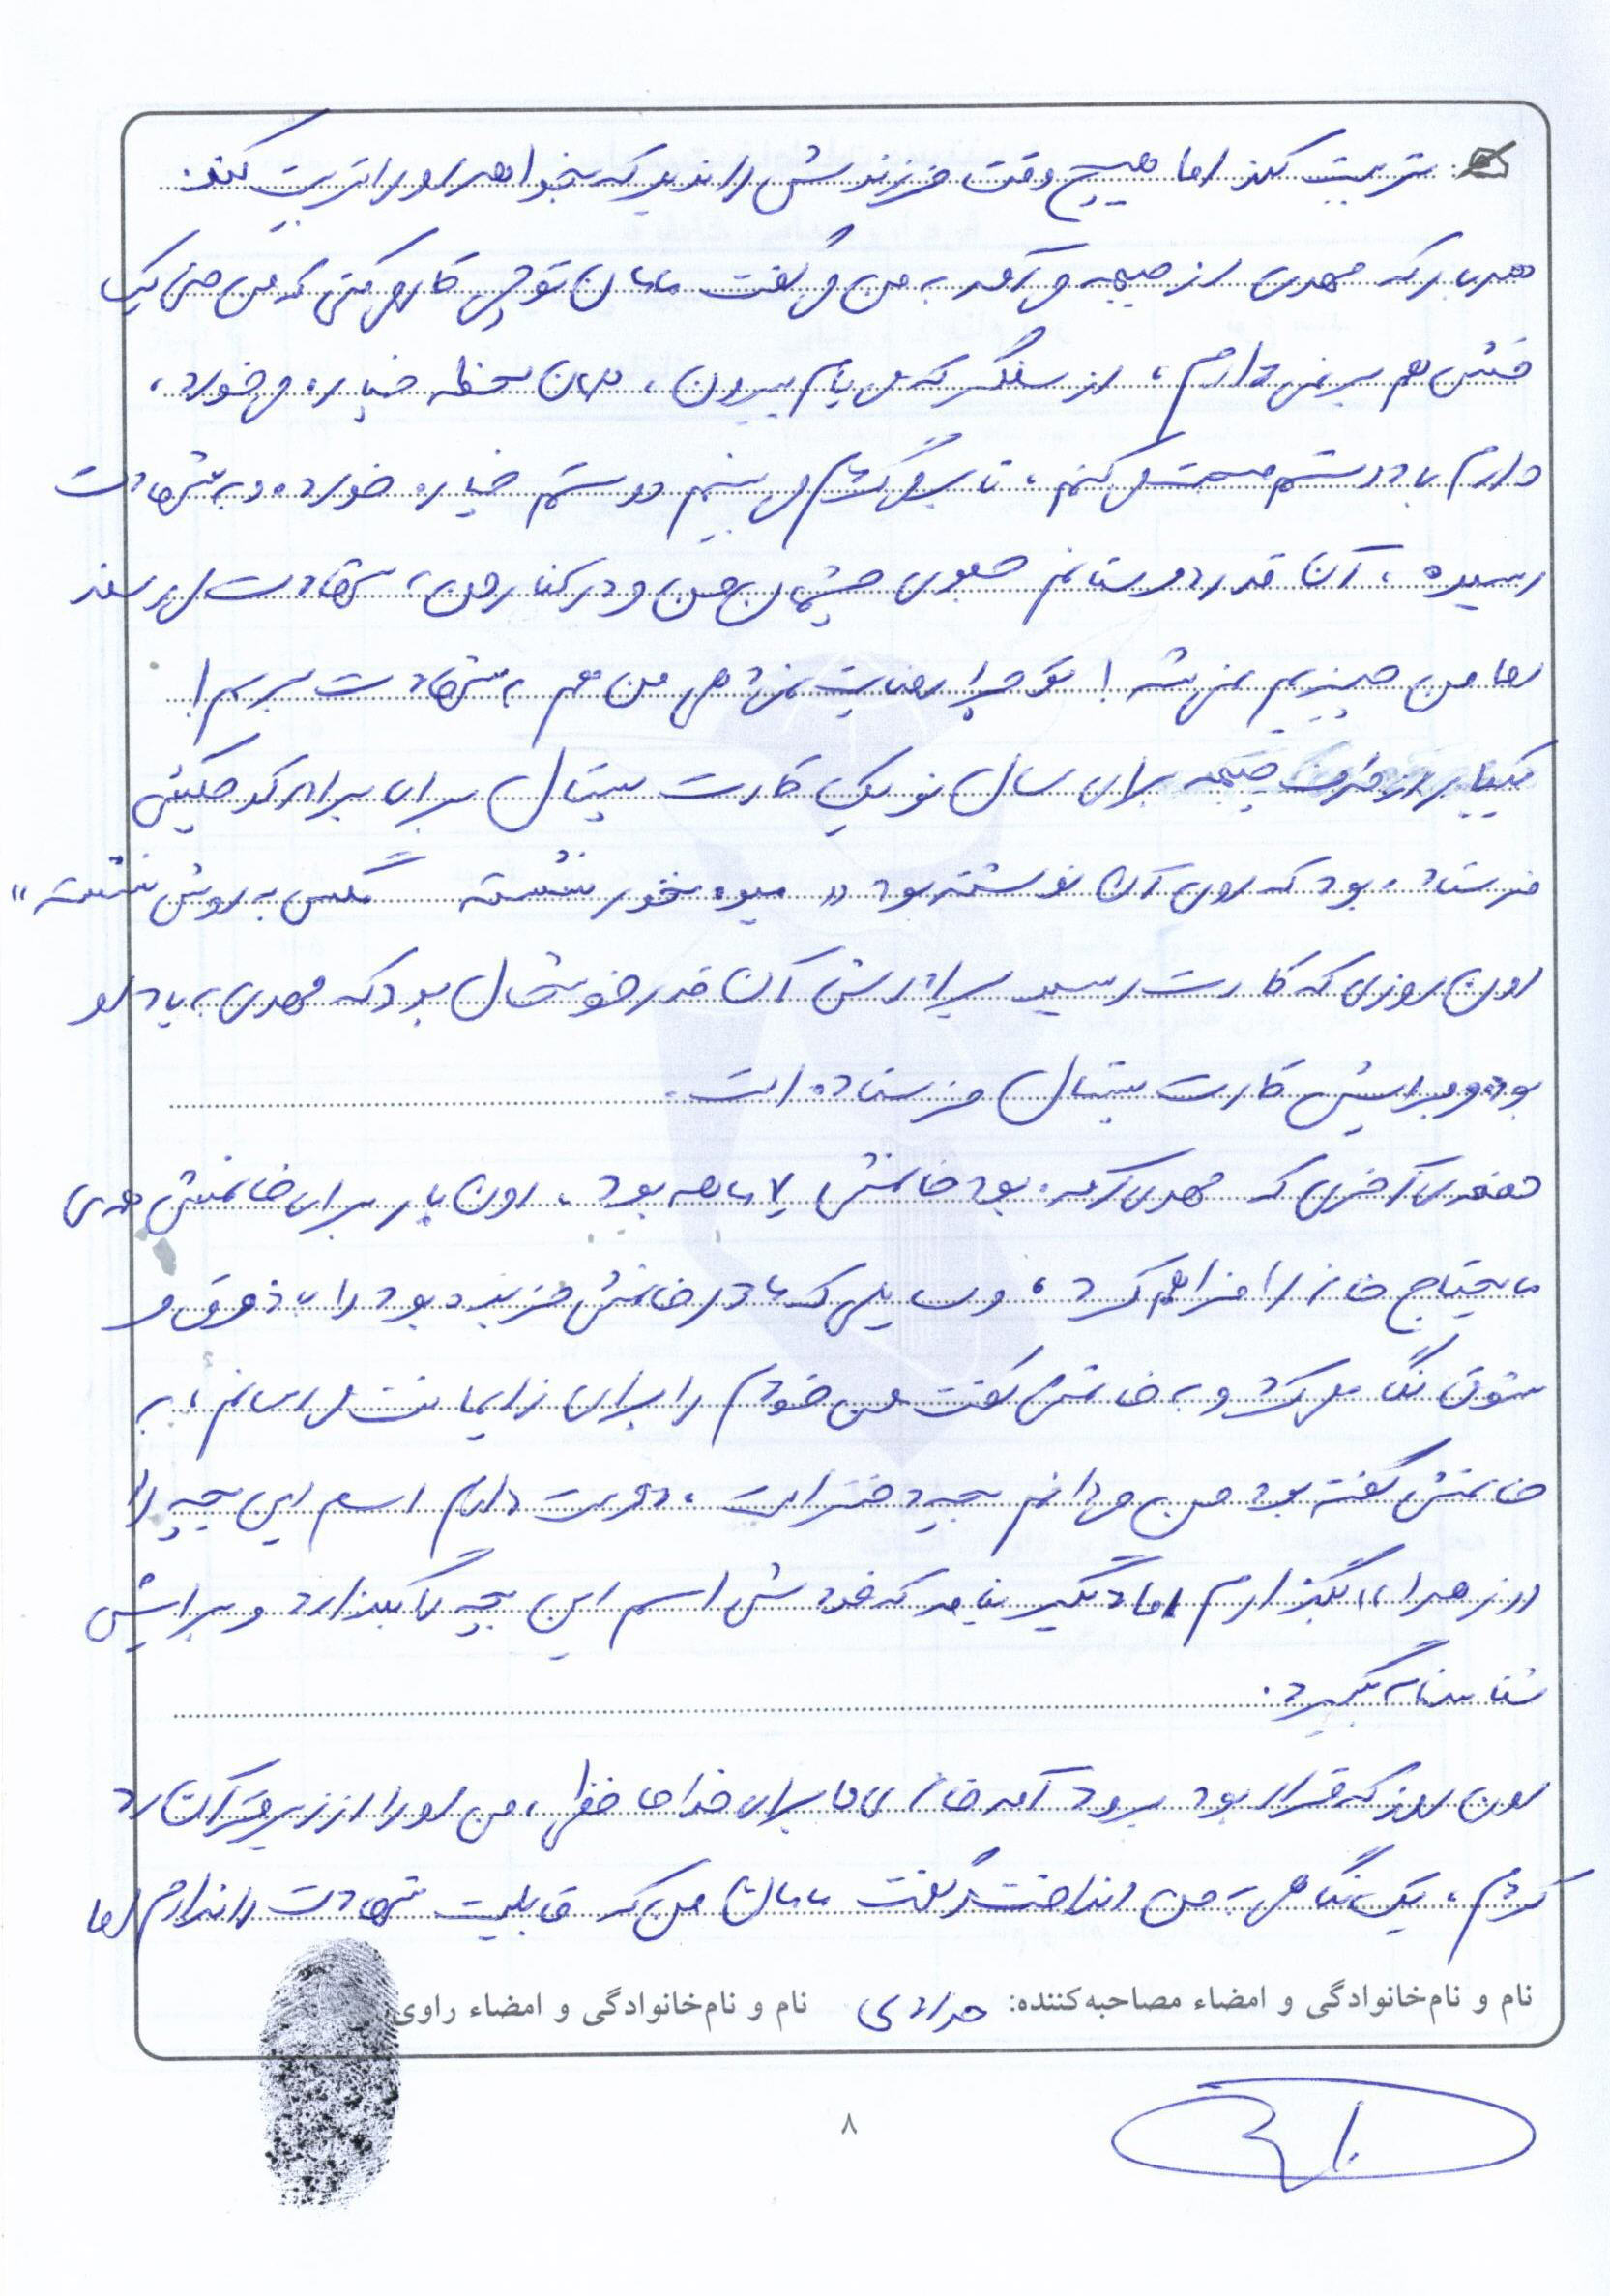 تربیت کند اما هیچ وقت فرزندش را ندید که بخواهد او را تربیت کند.
هر بار که مهدی از جبهه می آمد به من می گفت مامان تو چی کار می کنی که من حتی یک
خش هم بر نمی دارم، از سنگر که می یام بیرون، همان لحظه خمپاره می خورد،
دارم با دوستم صحبت می کنم، تا بر می گردم می بینم دوستم خمپاره خورده و به شهادت
رسیده، آن قدر دوستانم جلوی چشمان من و در کنار من، به شهادت می رسند
اما من چیزیم نمی شه! تو چرا رضایت نمی دهی من هم به شهادت برسم!
یکبار از طرف جبهه برای سال نو یک کارت پستال برای برادر کوچکش
فرستاده بود که روی آن نوشته بود « میوه بخور نشسته مگس به روش نشسته »
اون روزی که کارت رسید برادرش آن قدر خوشحال بود که مهدی به یاد او
بوده و برایش کارت پستال فرستاده است.
دفعه ی آخری که مهدی آمده بود خانمش ۷ ماهه بود، اون بار برای خانمش همه ی
مایحتاج خانه را فراهم کرد، وسایلی که مادر خانمش خریده بود را با ذوق و
شوق نگاه می کرد و به خانمش گفت من خودم را برای زایمانت می رسانم، به
خانمش گفته بود من می دانم بچه دختر است، دوست دارم اسم این بچه را
«زهرا» بگذارم اما دیگر نیامد که خودش اسم این بچه را بگذارد و برایش
شناسنامه بگیرد.
اون روز که قرار بود برود آمد خانه ی ما برای خداحافظی، من او را از زیر قرآن رد
کردم، یک نگاهی به من انداخت و گفت مامان من که قابلیت شهادت را ندارم اما
نام و نام‌خانوادگی و امضاء مصاحبه‌کننده: نام و نام‌خانوادگی و امضاء راوی
۸